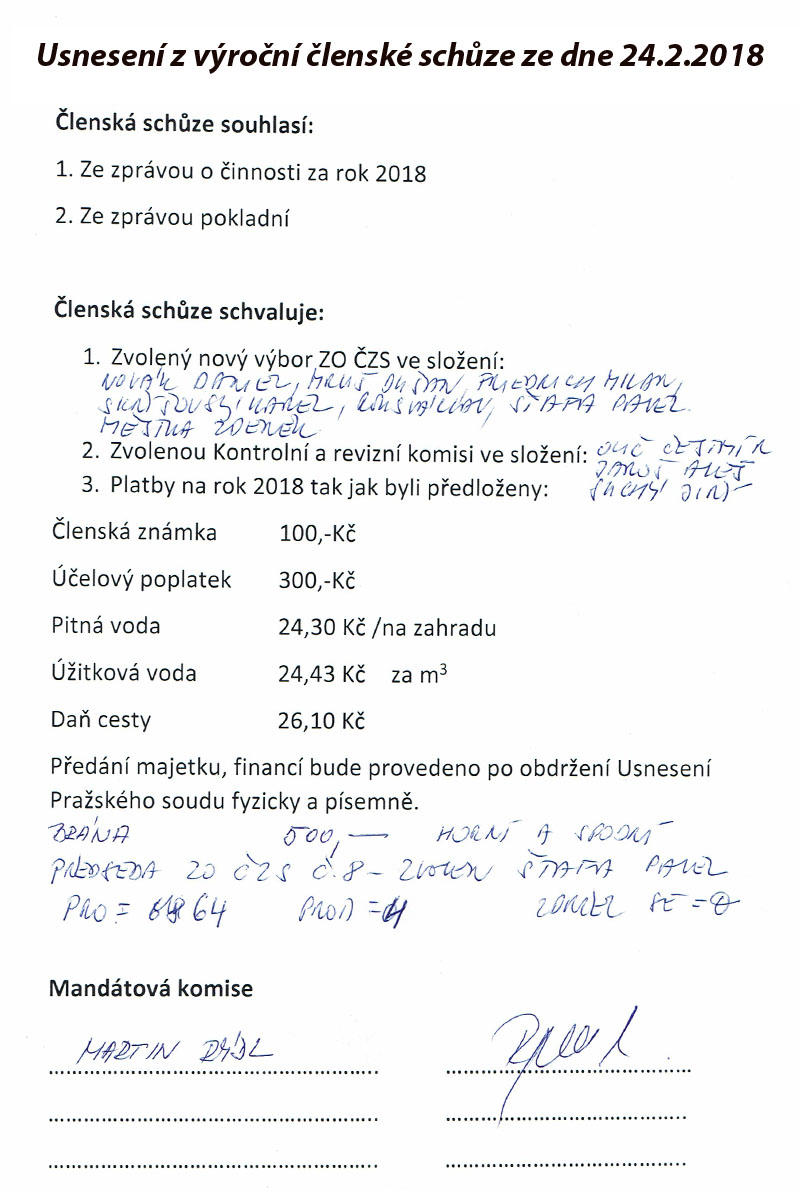 Usnesení z výroční členské schůze ze dne 24.2.2018
Členská schůze souhlasí:
1. Ze zprávou o činnosti za rok 2018
2. Ze zprávou pokladní
Členská schůze schvaluje:
1. Zvolený nový výbor ZO ČZS ve složení:
NOVÁK DANIEL, HRUŠ DUŠAN, FRIEDRICH MILAN,
KAREL, VÁCLAV, ŠTAFA PAVEL
ZDENEK
2. Zvolenou Kontrolní a revizní komisi ve složení: ČESTMÍR
JAROŠ ALEŠ
3. Platby na rok 2018 tak jak byli předloženy: SUCHÝ JIŘÍ
Členská známka 100,-Kč
Účelový poplatek 300,-Kč
Pitná voda 24,30 Kč /na zahradu
Úžitková voda 24,43 Kč za m³
Daň cesty 26,10 Kč
Předání majetku, financí bude provedeno po obdržení Usnesení
Pražského soudu fyzicky a písemně.
BRÁNA 500,— HORNÍ A SPODNÍ
PŘEDSEDA ZO ČZS Č.8 – ZVOLEN ŠTAFA PAVEL
PRO = 64 PROTI = 4 ZDRŽEL SE = 0
Mandátová komise
MARTIN